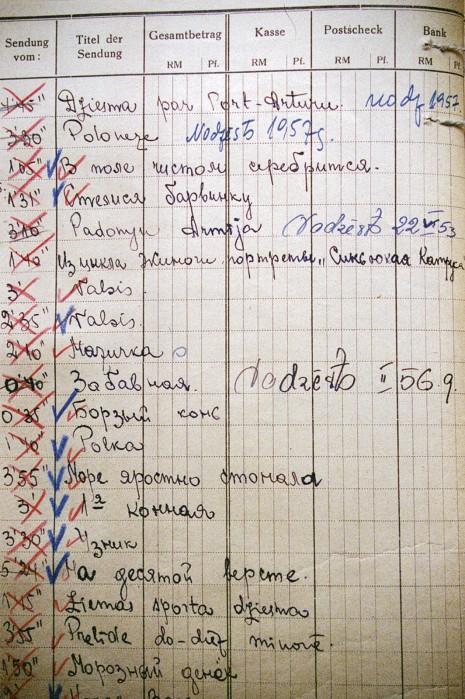 Sendung vom: Titel der Sendung Gesamtbetrag Kasse Postscheck Bank
RM Pf. RM Pf. RM Pf. RM Pf.
Dziesma par Port-Arturu. nodz 1957.
3'30" Poloneze Nodzēsts 1957g.
1'05" В поле чистом серебрится.
1'31" Стелися барвинку
3'10" Padomju Armija Nodzēsts 22 VI 53
1'40" Из цикла Жиночи портреты „Синьокая
3' Valsis.
2'35" Valsis.
2'10" Мазурка
0'40" Забавная. Nodzēsts II 56.g.
0'35" Борзый конь
1'40" Polka
3'55" Море яростно стонало
3' 1ª конная
3'30" Узник
5'24" На десятой версте.
1'45" Ziemas sporta dziesma
3'55" Prelīde do-diēz minorā.
1'50" Морозный денёк